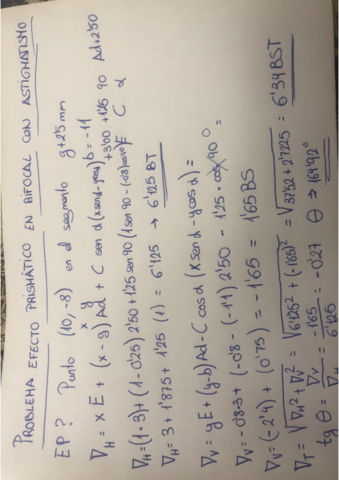 PROBLEMA EFECTO PRISMÁTICO EN BIFOCAL CON ASTIGMATISMO
EP? Punto (10,-8) en el segmento g+2'5 mm
b = -11
x y +3'00 +1'25 90 Ad+2'50
∇H = x E + (x-g) Ad + C sen α (x senα - y cosα) E C α
∇H = (1·3) + (1-0'25) 2'50 + 1'25 sen 90 (1 sen 90 - (-0'8) cos 90)
∇H = 3 + 1'875 + 1'25 (1) = 6'125 → 6'125 BT
∇V = y E + (y-b) Ad - C cos α (x sen α - y cos α) =
∇V = -0'8·3 + (-0'8 - (-1'1)) 2'50 - 1'25 · cos 90° =
∇V = (-2'4) + (0'75) = -1'65 = 1'65 BS
∇T = √∇H² + ∇V² = √6'125² + (-1'65)² = √37'52 + 2'7225 = 6'34 BST
tg θ = ∇V / ∇H = -1'65 / 6'125 = -0'27 θ ⇒ 164'92°